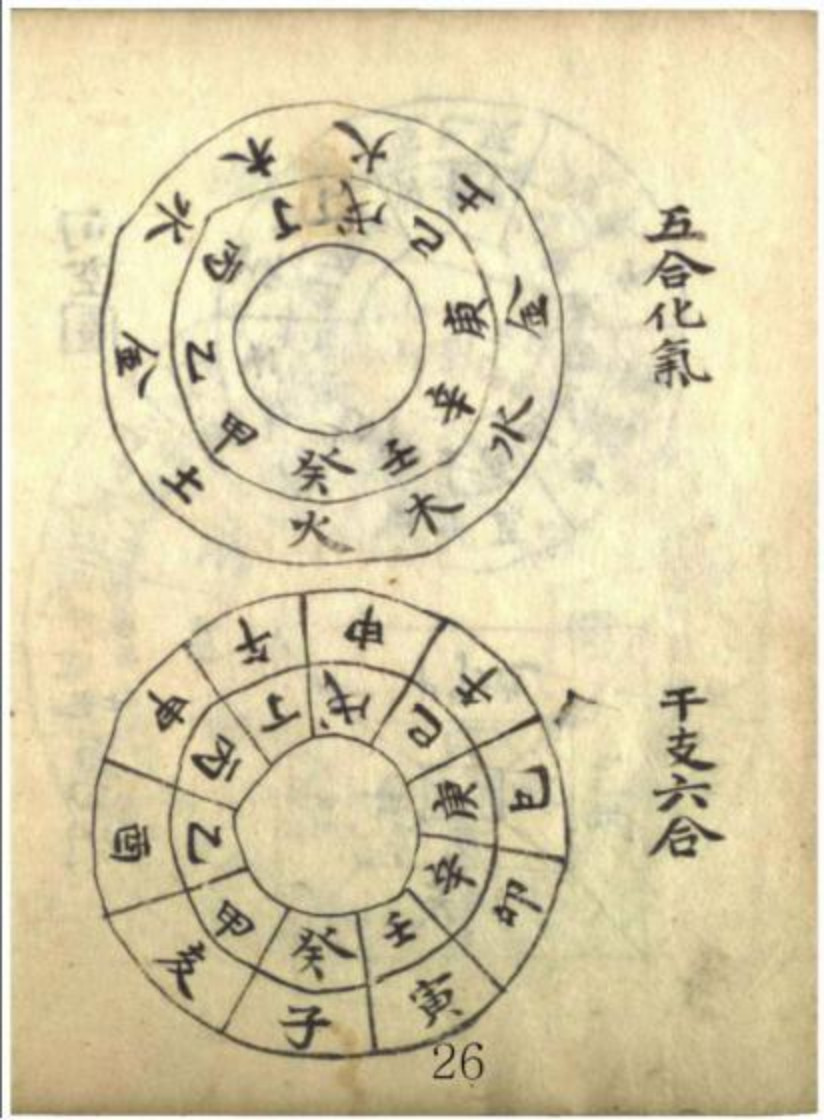 五合化氣
土金水木火土金水木火
甲乙丙丁戊己庚辛壬癸
干支六合
亥酉申午申午巳卯寅子
甲乙丙丁戊己庚辛壬癸
26